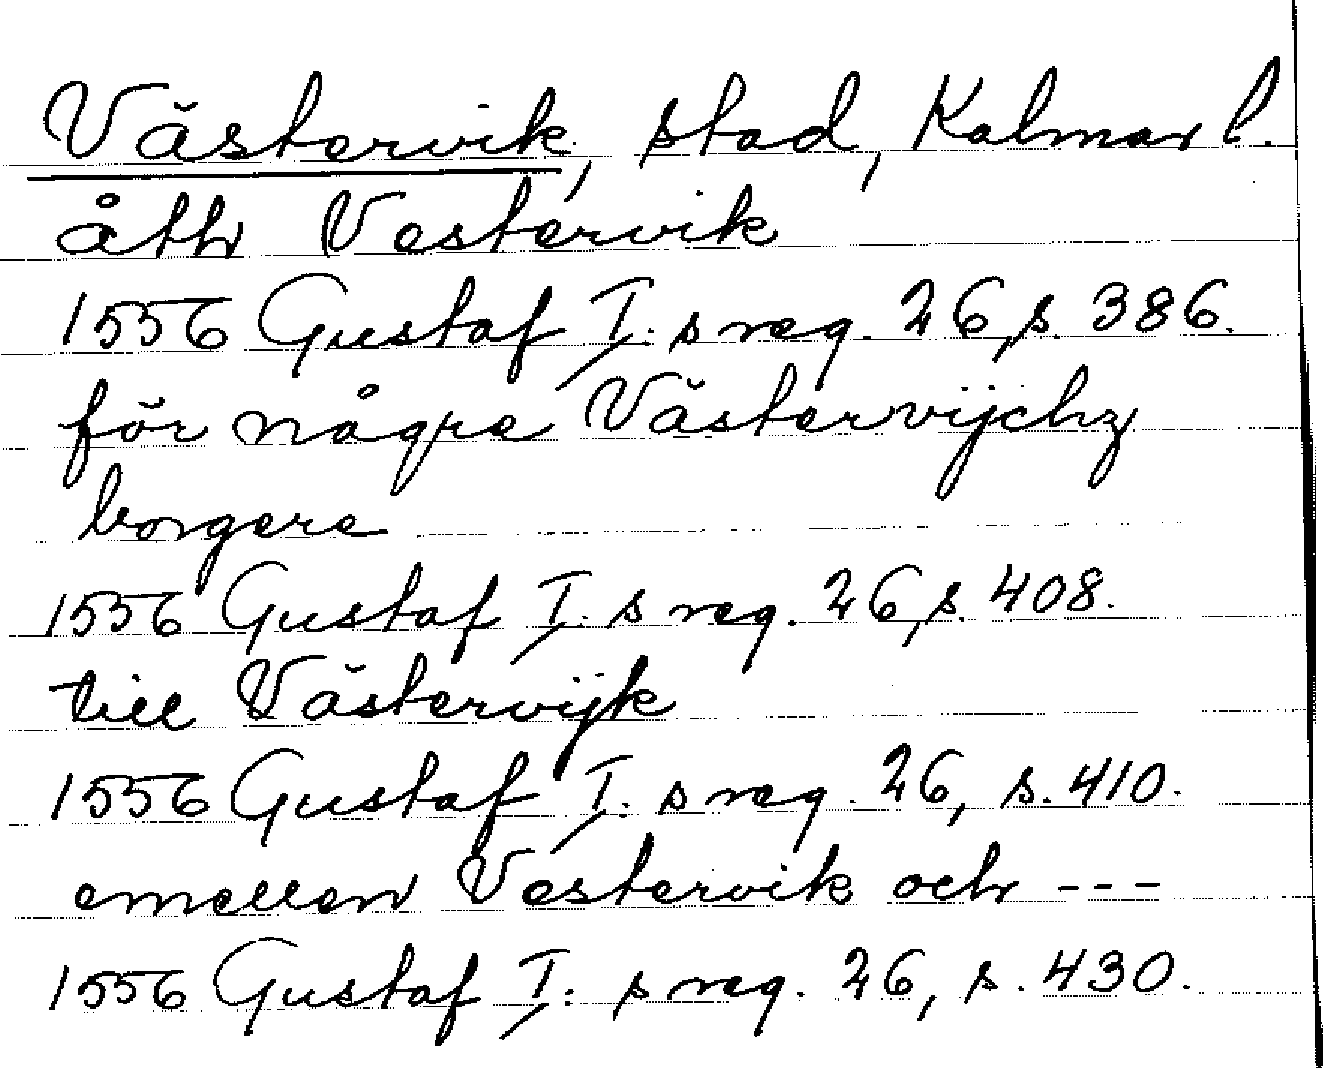 Västervik, stad, Kalmar l.
åth Vestervik
1556 Gustaf I: s reg. 26, s. 386.
för någre Västervijchz
borgere
1556 Gustaf I: s reg. 26, s. 408.
till Västervijk
1556 Gustaf I: s reg. 26, s. 410.
emellen Vestervik och ---
1556 Gustaf I: s reg. 26, s. 430.